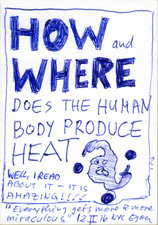 HOW and
WHERE
DOES THE HUMAN
BODY PRODUCE
HEAT
?
WELL, I READ
ABOUT IT – IT IS
AMAZING!!!!
"Everything gets more & more
miraculous" 12 II 16 NYC